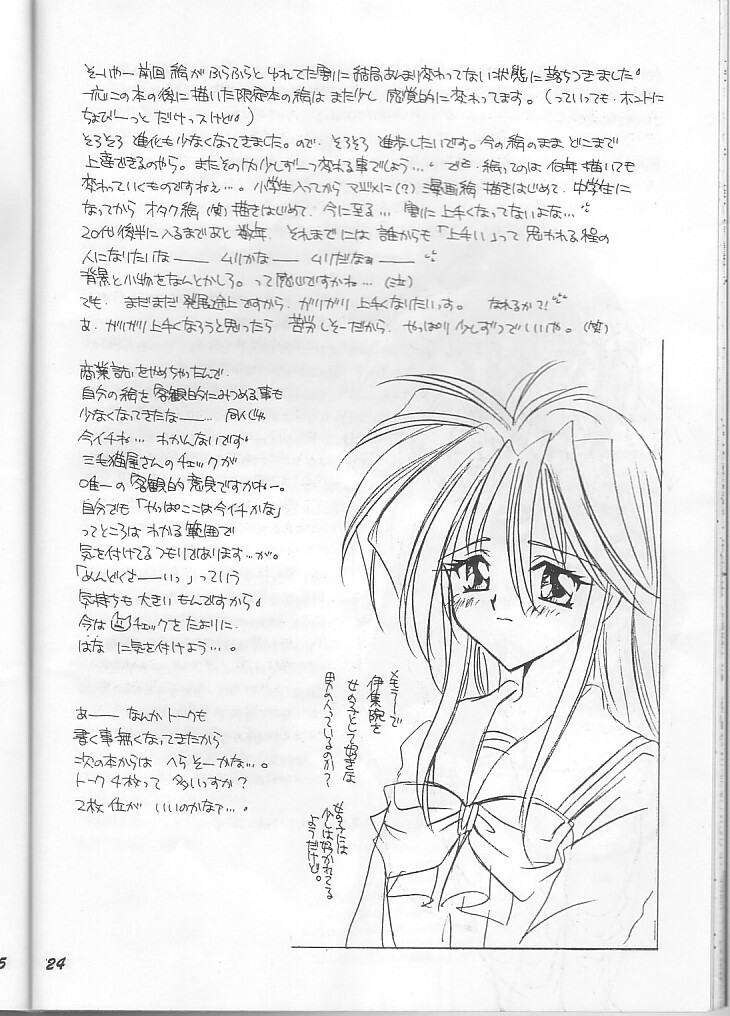 そーいやー前回 絵が ふらふらと ゆれてた割に 結局あんまり変わってない状態に落ちつきました。
一応この本の後に描いた限定本の絵は また少し 感覚的に変わってます。(っていっても・ホントに
ちょびーっと だけっスけど。)
そろそろ 進化も少なくなってきました。ので・そろそろ 進歩したいです。今の絵のまま どこまで
上達できるのやら。またそのうち少しずーつ変わる事でしょう…。でも・絵ってのは 何年 描いても
変わっていくものですねぇ…。小学生入ってから マジメに(?) 漫画絵 描きはじめて. 中学生に
なってから オタク絵 (笑) 描きはじめて. 今に至る… 割に上手くなってないよな…
20代後半に入るまであと 数年. それまでには 誰からも「上手い」って 思われる程の
人になりたいなーー ムリかなー ムリだなぁー
背景と小物をなんとかしろ。って感じですかね…(泣)
でも. まだまだ 発展途上ですから. ガリガリ 上手くなりたいっす。 なれるか?!
あ. ガリガリ上手くなろうと思ったら 苦労しそーだから. やっぱり少しずつでいいや。(笑)
商業誌をやめちゃったんで.
自分の絵を客観的にみつめる事も
少なくなってきたなー… 同人じゃ
今イチね… わかんないです。
三毛猫屋さんのチェックが
唯一の客観的意見ですかねー。
自分でも「やっぱここは今イチかな」
ってところは わかる範囲で
気を付けてるつもりではあります…が。
「めんどくさーいっ」っていう
気持ちも 大きい もんですから。
今は チェックをたよりに.
はな に気を付けよう…。
あーー なんか トークも
書く事無くなってきたから
次の本からは へらそーかな…。
トーク 4枚って 多いっスか?
2枚 位が いいのかなァ…。
メモラーで
伊集院を
女の子として好きな
男の人っているのか?
女の子には
少しは好かれてる
ようだけど。
5
24